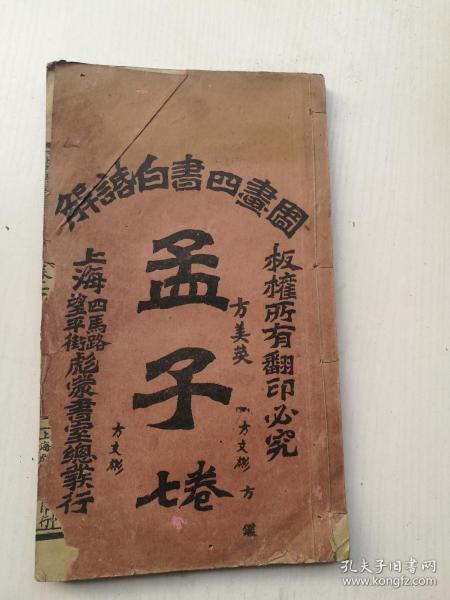 圖畫四書白話解
板權所有翻印必究
孟子
卷七
上海四馬路望平街彪蒙書室總發行
方美英
方文彬
方
方文彬
上海
印行
孔夫子旧书网
www.kongfz.com